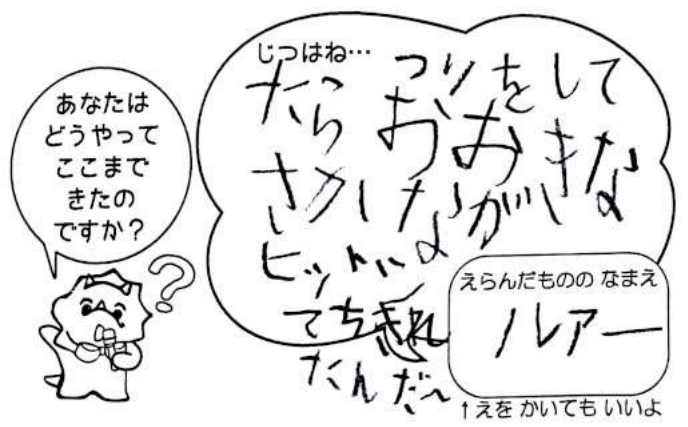 あなたは
どうやって
ここまで
きたの
ですか?
じつはね…
つりをして
たら おおきな
さかなが
ヒットし
てちぎれ
たんだ〜
えらんだものの なまえ
ルアー
↑えを かいても いいよ